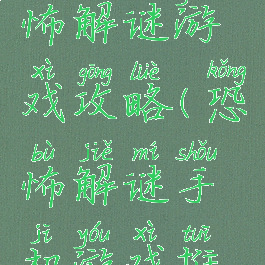 怖解谜游
xì gōng lüè kǒng
戏攻略(恐
bù jiě mí shǒu
怖解谜手
jī yóu xì tuī
机游戏推